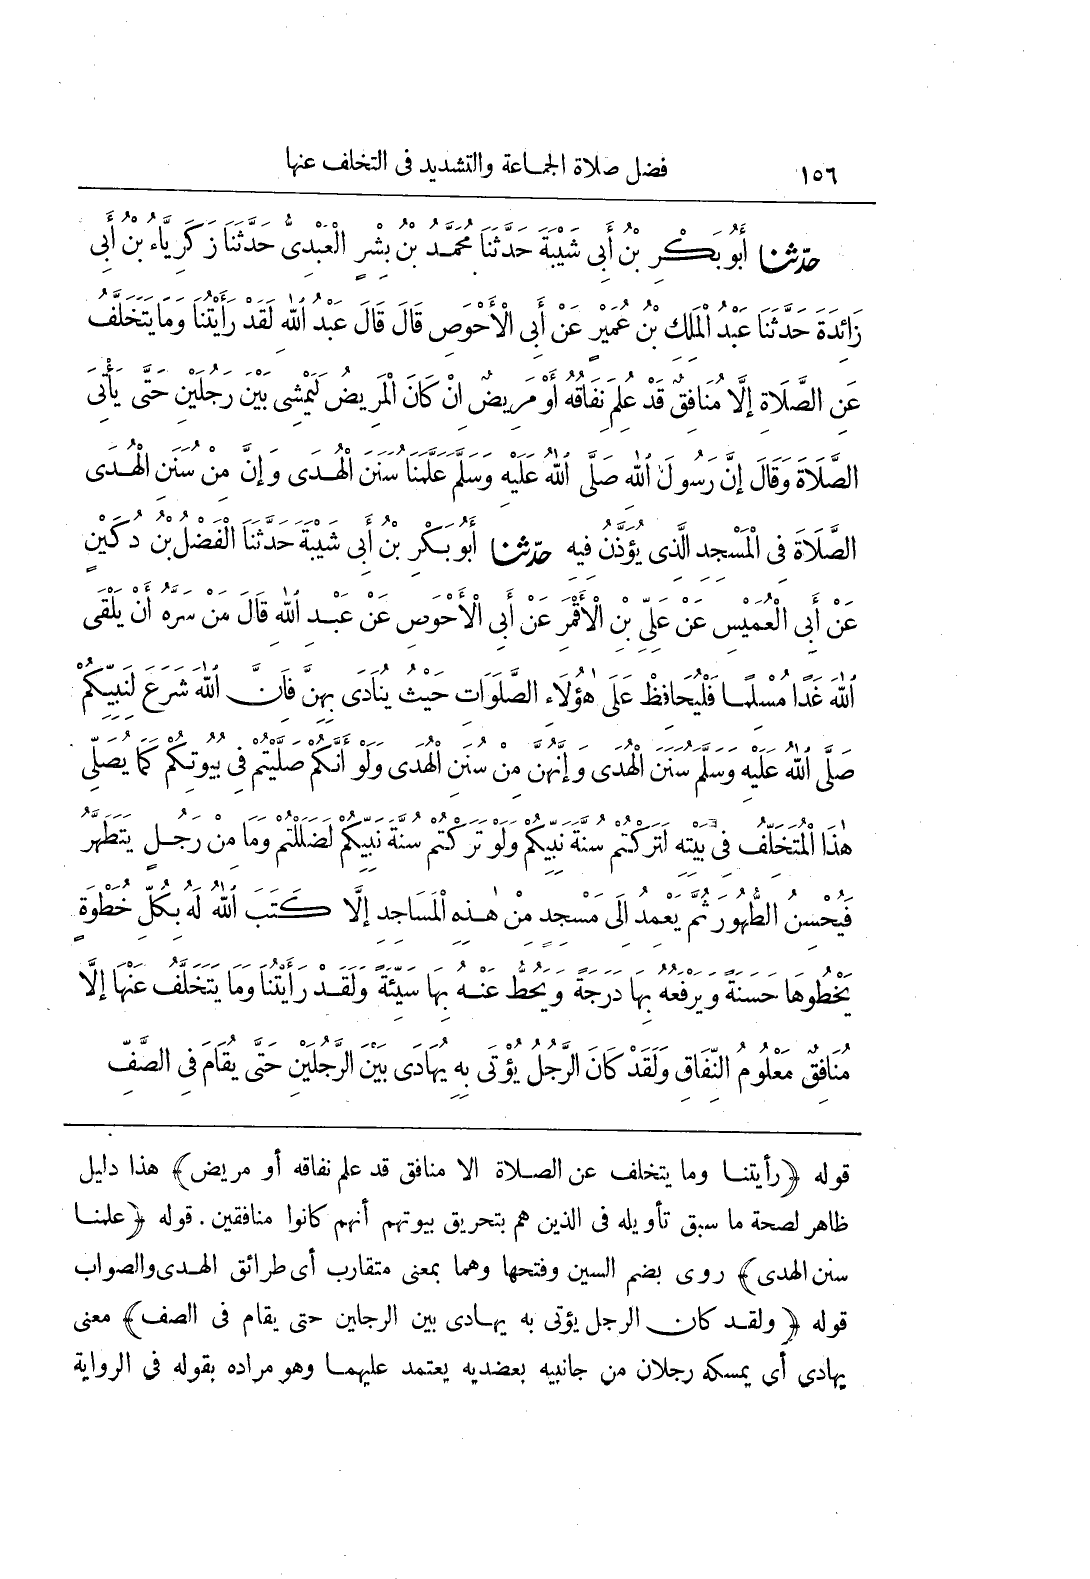 ١٥٦ فضل صلاة الجماعة والتشديد فى التخلف عنها
حدثنا أَبُو بَكْرِ بْنُ أَبِى شَيْبَةَ حَدَّثَنَا مُحَمَّدُ بْنُ بِشْرٍ الْعَبْدِىُّ حَدَّثَنَا زَكَرِيَّاءُ بْنُ أَبِى
زَائِدَةَ حَدَّثَنَا عَبْدُ الْمَلِكِ بْنُ عُمَيْرٍ عَنْ أَبِى الْأَحْوَصِ قَالَ قَالَ عَبْدُ اللّٰهِ لَقَدْ رَأَيْتُنَا وَمَا يَتَخَلَّفُ
عَنِ الصَّلَاةِ إِلَّا مُنَافِقٌ قَدْ عُلِمَ نِفَاقُهُ أَوْ مَرِيضٌ انْ كَانَ الْمَرِيضُ لَيَمْشِى بَيْنَ رَجُلَيْنِ حَتَّى يَأْتِىَ
الصَّلَاةَ وَقَالَ إِنَّ رَسُولَ اللّٰهِ صَلَّى اللّٰهُ عَلَيْهِ وَسَلَّمَ عَلَّمَنَا سُنَنَ الْهُدَى وَإِنَّ مِنْ سُنَنِ الْهُدَى
الصَّلَاةَ فِى الْمَسْجِدِ الَّذِى يُؤَذَّنُ فِيهِ حدثنا أَبُو بَكْرِ بْنُ أَبِى شَيْبَةَ حَدَّثَنَا الْفَضْلُ بْنُ دُكَيْنٍ
عَنْ أَبِى الْعُمَيْسِ عَنْ عَلِىِّ بْنِ الْأَقْمَرِ عَنْ أَبِى الْأَحْوَصِ عَنْ عَبْدِ اللّٰهِ قَالَ مَنْ سَرَّهُ أَنْ يَلْقَى
اللّٰهَ غَدًا مُسْلِمًا فَلْيُحَافِظْ عَلَى هٰؤُلَاءِ الصَّلَوَاتِ حَيْثُ يُنَادَى بِهِنَّ فَانَّ اللّٰهَ شَرَعَ لِنَبِيِّكُمْ
صَلَّى اللّٰهُ عَلَيْهِ وَسَلَّمَ سُنَنَ الْهُدَى وَإِنَّهُنَّ مِنْ سُنَنِ الْهُدَى وَلَوْ أَنَّكُمْ صَلَّيْتُمْ فِى بُيُوتِكُمْ كَمَا يُصَلِّى
هٰذَا الْمُتَخَلِّفُ فِى بَيْتِهِ لَتَرَكْتُمْ سُنَّةَ نَبِيِّكُمْ وَلَوْ تَرَكْتُمْ سُنَّةَ نَبِيِّكُمْ لَضَلَلْتُمْ وَمَا مِنْ رَجُلٍ يَتَطَهَّرُ
فَيُحْسِنُ الطُّهُورَ ثُمَّ يَعْمِدُ الَى مَسْجِدٍ مِنْ هٰذِهِ الْمَسَاجِدِ إِلَّا كَتَبَ اللّٰهُ لَهُ بِكُلِّ خُطْوَةٍ
يَخْطُوهَا حَسَنَةً وَيَرْفَعُهُ بِهَا دَرَجَةً وَيَحُطُّ عَنْهُ بِهَا سَيِّئَةً وَلَقَدْ رَأَيْتُنَا وَمَا يَتَخَلَّفُ عَنْهَا إِلَّا
مُنَافِقٌ مَعْلُومُ النِّفَاقِ وَلَقَدْ كَانَ الرَّجُلُ يُؤْتَى بِهِ يُهَادَى بَيْنَ الرَّجُلَيْنِ حَتَّى يُقَامَ فِى الصَّفِّ
قوله ﴿رأيتنا وما يتخلف عن الصلاة الا منافق قد علم نفاقه أو مريض﴾ هذا دليل
ظاهر لصحة ما سبق تأويله فى الذين هم بتحريق بيوتهم أنهم كانوا منافقين. قوله ﴿علمنا
سنن الهدى﴾ روى بضم السين وفتحها وهما بمعنى متقارب أى طرائق الهدى والصواب
قوله ﴿ولقد كان الرجل يؤتى به يهادى بين الرجلين حتى يقام فى الصف﴾ معنى
يهادى أى يمسكه رجلان من جانبيه بعضديه يعتمد عليهما وهو مراده بقوله فى الرواية